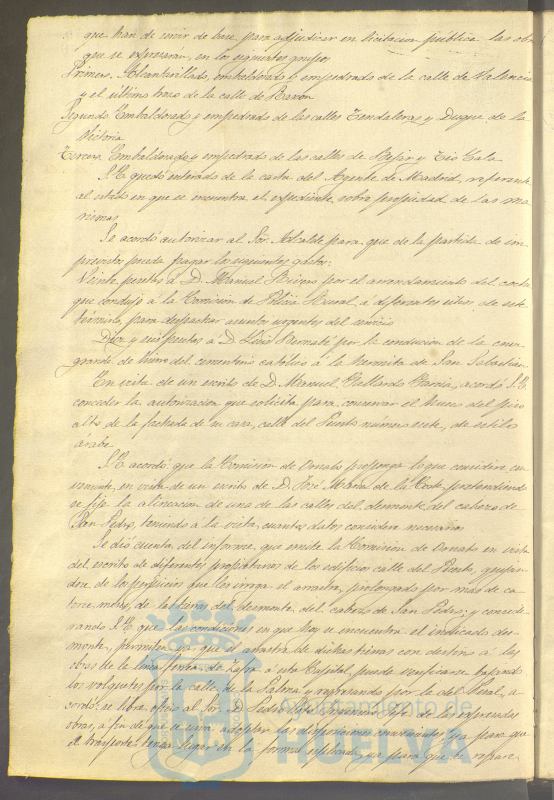 que han de servir de base para adjudicar en licitacion publica las obras
que se expresarán, en los siguientes grupos
Primero. Alcantarillado, embaldosado y empedrado de la calle de Valencia
y el último trozo de la calle de Rascon
Segundo Embaldosado y empedrado de las calles Tendaleras y Duque de la
Victoria
Tercero Embaldosado y empedrado de las calles de Bejar y Tio Cala
S.E. quedó enterado de la carta del Agente de Madrid, referente
al estado en que se encuentra el expediente sobre propiedad de las ma
rismas
Se acordó autorizar al Sor. Alcalde para que de la partida de im
previstos pueda pagar los siguientes gastos:
Veinte pesetas á D. Manuel por el arrendamiento del coche
que condujo á la Comision de Policia Rural á diferentes sitios de este
término, para despachar asuntos urgentes del servicio
Diez y seis pesetas á D. Luis Bernabé por la conduccion de la cruz
grande de hierro del cementerio católico á la hermita de San Sebastian
En vista de un escrito de D. Manuel Gallardo Garcia, acordó S.E.
conceder la autorizacion que solicita para conservar el hueco del piso
alto de la fachada de su casa, calle del Puerto número siete, de estilo
árabe
S.E. acordó que la Comision de Ornato proponga lo que considere con
veniente, en vista de un escrito de D. José Maria de la Corte pretendiendo
se fije la alineacion de una de las calles del desmonte del cabezo de
San Pedro, teniendo á la vista cuantos datos considere necesarios
Se dió cuenta del informe que emite la Comision de Ornato en vista
del escrito de diferentes propietarios de los edificios calle del Puerto, quejan
dose de los perjuicios que les irroga el arrastre, prolongado por más de ca
torce meses, de las tierras del desmonte del cabezo de San Pedro; y conside
rando S.E. que las condiciones en que hoy se encuentra el indicado des
monte, permiten ya que el arrastre de dichas tierras con destino á las
obras de la linea ferrea de Zafra á esta Capital, puede verificarse bajando
los volquetes por la calle de la Palma y regresando por la del Peral, a
cordó se libre oficio al Sor. D. Pedro Jefe de las expresadas
obras, á fin de que se sirva adoptar las disposiciones convenientes ya para que
el trasporte tenga lugar en la forma explicada, ya para que se repare
Ayuntamiento de
HUELVA